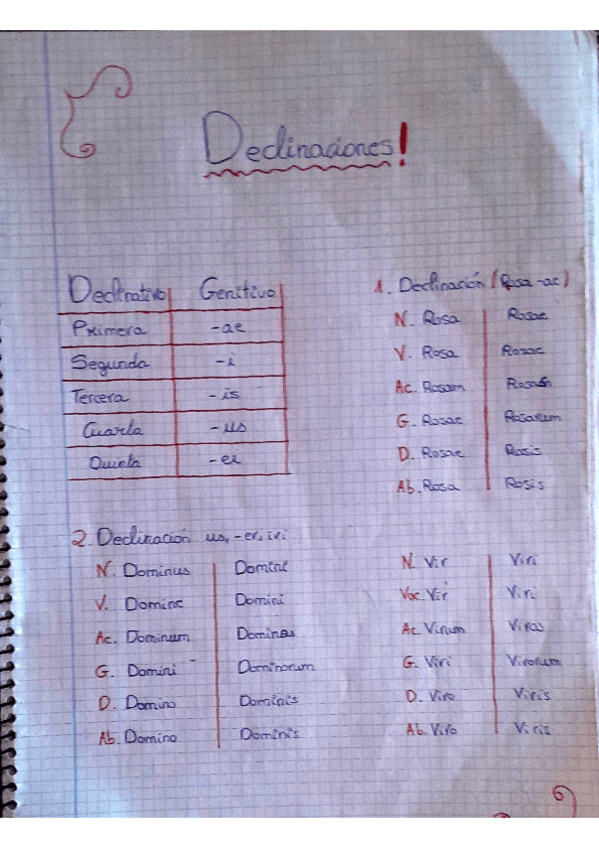 Declinaciones!
Declinativo Genitivo
Primera -ae
Segunda -i
Tercera -is
Cuarta -us
Quinta -ei
1. Declinación (Rosa -ae)
N. Rosa Rosae
V. Rosa Rosae
Ac. Rosam Rosas
G. Rosae Rosarum
D. Rosae Rosis
Ab. Rosa Rosis
2. Declinación us, -er, iri
N. Dominus Domini
V. Domine Domini
Ac. Dominum Dominos
G. Domini Dominorum
D. Domino Dominis
Ab. Domino Dominis
N. Vir Viri
Voc. Vir Viri
Ac. Virum Viros
G. Viri Virorum
D. Viro Viris
Ab. Viro Viris